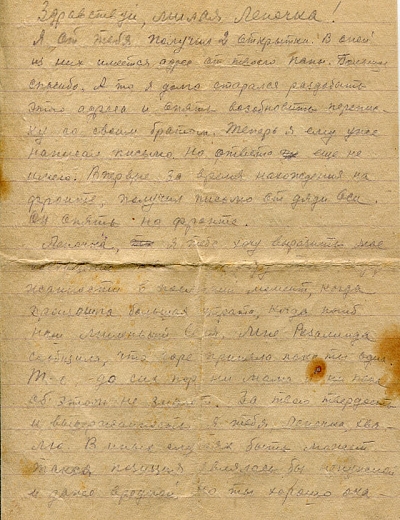 Здравствуй, милая Леночка!
Я от тебя получил 2 открытки. В одной
из них имеется адрес от твоего папы. Большое
спасибо. А то я долго старался раздобыть
этого адреса и опять возобновить перепис-
ку со своим братом. Теперь я ему уже
написал письмо, но ответа еще не
имею. Впервые за время нахождения на
фронте, получил письмо от дяди Оси.
Он опять на фронте.
Леночка, я тебе хочу выразить мое
в последний момент, когда
произошла большая утрата, когда погиб
наш миленький Мне Розалинда
сообщила, что горе приняла пока ты одна.
Т-е. до сих пор ни мама и ни папа
об этом не знают. За твою твердость
и выдержанность я тебя Леночка хва-
лю. В иных случаях быть может
такая позиция являлась бы
и даже вредной, но ты хорошо ока-